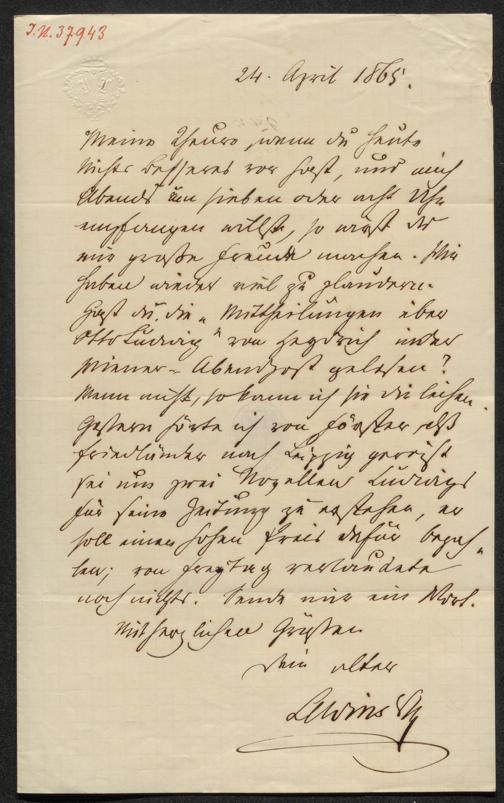 I.N. 37943
24. April 1865.
Meine Theure, wenn du heute
nichts besseres vor hast, und mich
Abends um sieben oder acht Uhr
empfangen willst, so wirst du
mir große Freude machen. Wir
haben wieder viel zu plaudern.
Hast du die „Mittheilungen über
Otto Ludwig“ von Heydrich in der
Wiener-Abendpost gelesen?
Wenn nicht, so kann ich sie dir leihen.
Gestern hörte ich von Förster daß
Friedländer nach Leipzig gereist
sei um zwei Novellen Ludwigs
für seine Zeitung zu erstehen, er
soll einen hohen Preis dafür bezah-
len; von Freytag verlautete
noch nichts. Sende mir ein Wort.
Mit herzlichen Grüßen
dein alter